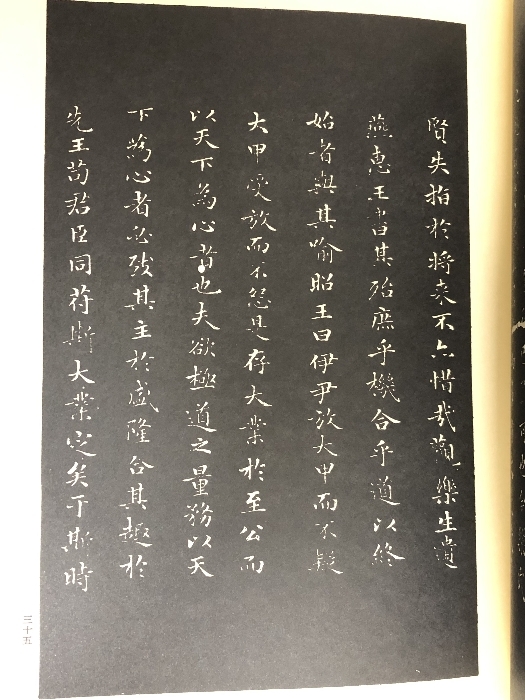 賢失指於將来不亦惜哉觀樂生遺
燕惠王書其殆庶乎機合乎道以終
始者與其喻昭王曰伊尹放大甲而不疑
大甲受放而不怨是存大業於至公而
以天下為心者也夫欲極道之量務以天
下為心者必致其主於盛隆合其趣於
先王苟君臣同符斯大業定矣于斯時
三十五